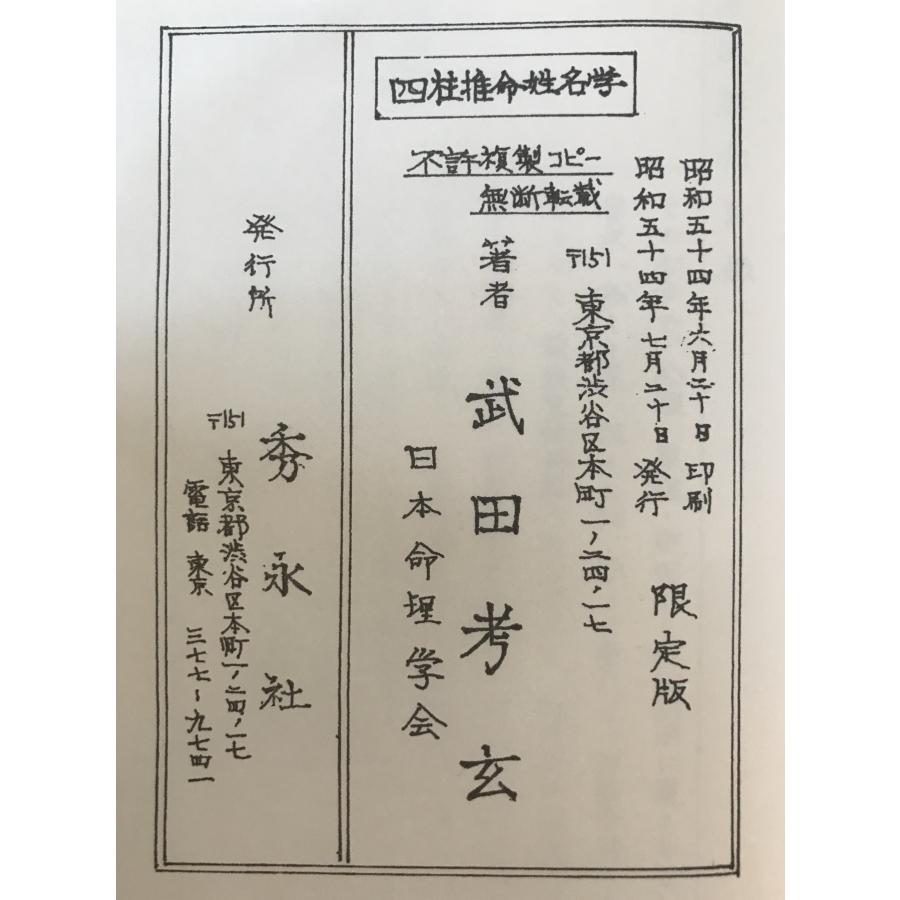 四柱推命姓名学
不許複製コピー
無断転載
昭和五十四年六月二十日 印刷
昭和五十四年七月二十日 発行
限定版
〒151 東京都渋谷区本町一ノ二四ノ一七
著者 武田考玄
日本命理学会
発行所 秀永社
〒151 東京都渋谷区本町一ノ二四ノ一七
電話 東京 三七七-九七四一